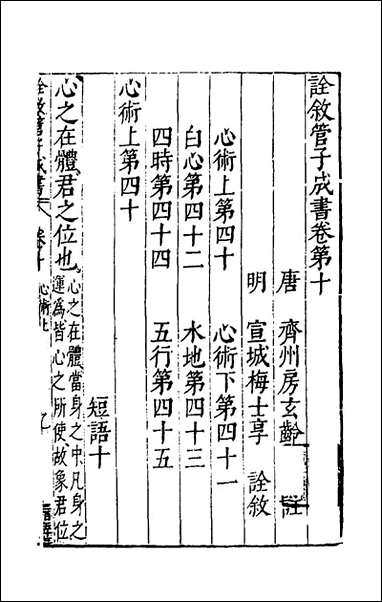 詮敘管子成書卷第十
唐 齊州房玄齡 註
明 宣城梅士享 詮敘
心術上第四十 心術下第四十一
白心第四十二 水地第四十三
四時第四十四 五行第四十五
短語十
心術上第四十
心之在體君之位也 心之在體當身之中凡身之
運為皆心之所使故象君位
詮敘管子成書 卷十 心術上